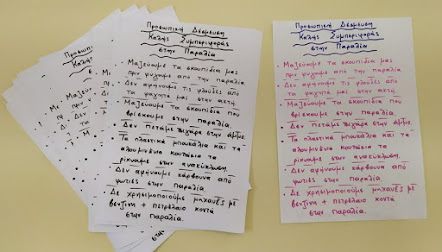 Προσωπική Δέσμευση
Καλής Συμπεριφοράς
στην Παραλία
· Μαζεύουμε τα σκουπίδια μας
πριν φύγουμε από την παραλία.
· Δεν αφήνουμε τις φλούδες από
τα φρούτα μας στην ακτή.
· Μαζεύουμε τα σκουπίδια που
βρίσκουμε στην παραλία.
· Δεν πετάμε τσιγάρα στην άμμο.
· Τα πλαστικά μπουκάλια και τα
αλουμινένια κουτάκια τα
ρίχνουμε στην ανακύκλωση.
· Δεν αφήνουμε κάρβουνα από
φωτιές στην παραλία.
· Δε χρησιμοποιούμε μηχανές με
βενζίνη + πετρέλαιο κοντά
στην παραλία.
Προσωπική Δέσμευση
Καλής Συμπεριφοράς
στην Παραλία
· Μαζεύουμε τα σκουπίδια μας
πριν φύγουμε από την παραλία.
· Δεν αφήνουμε τις φλούδες από
τα φρούτα μας στην ακτή.
· Μαζεύουμε τα σκουπίδια που
βρίσκουμε στην παραλία.
· Δεν πετάμε τσιγάρα στην άμμο.
· Τα πλαστικά μπουκάλια και τα
αλουμινένια κουτάκια τα
ρίχνουμε στην ανακύκλωση.
· Δεν αφήνουμε κάρβουνα από
φωτιές στην παραλία.
· Δε χρησιμοποιούμε μηχανές με
βενζίνη + πετρέλαιο κοντά
στην παραλία.